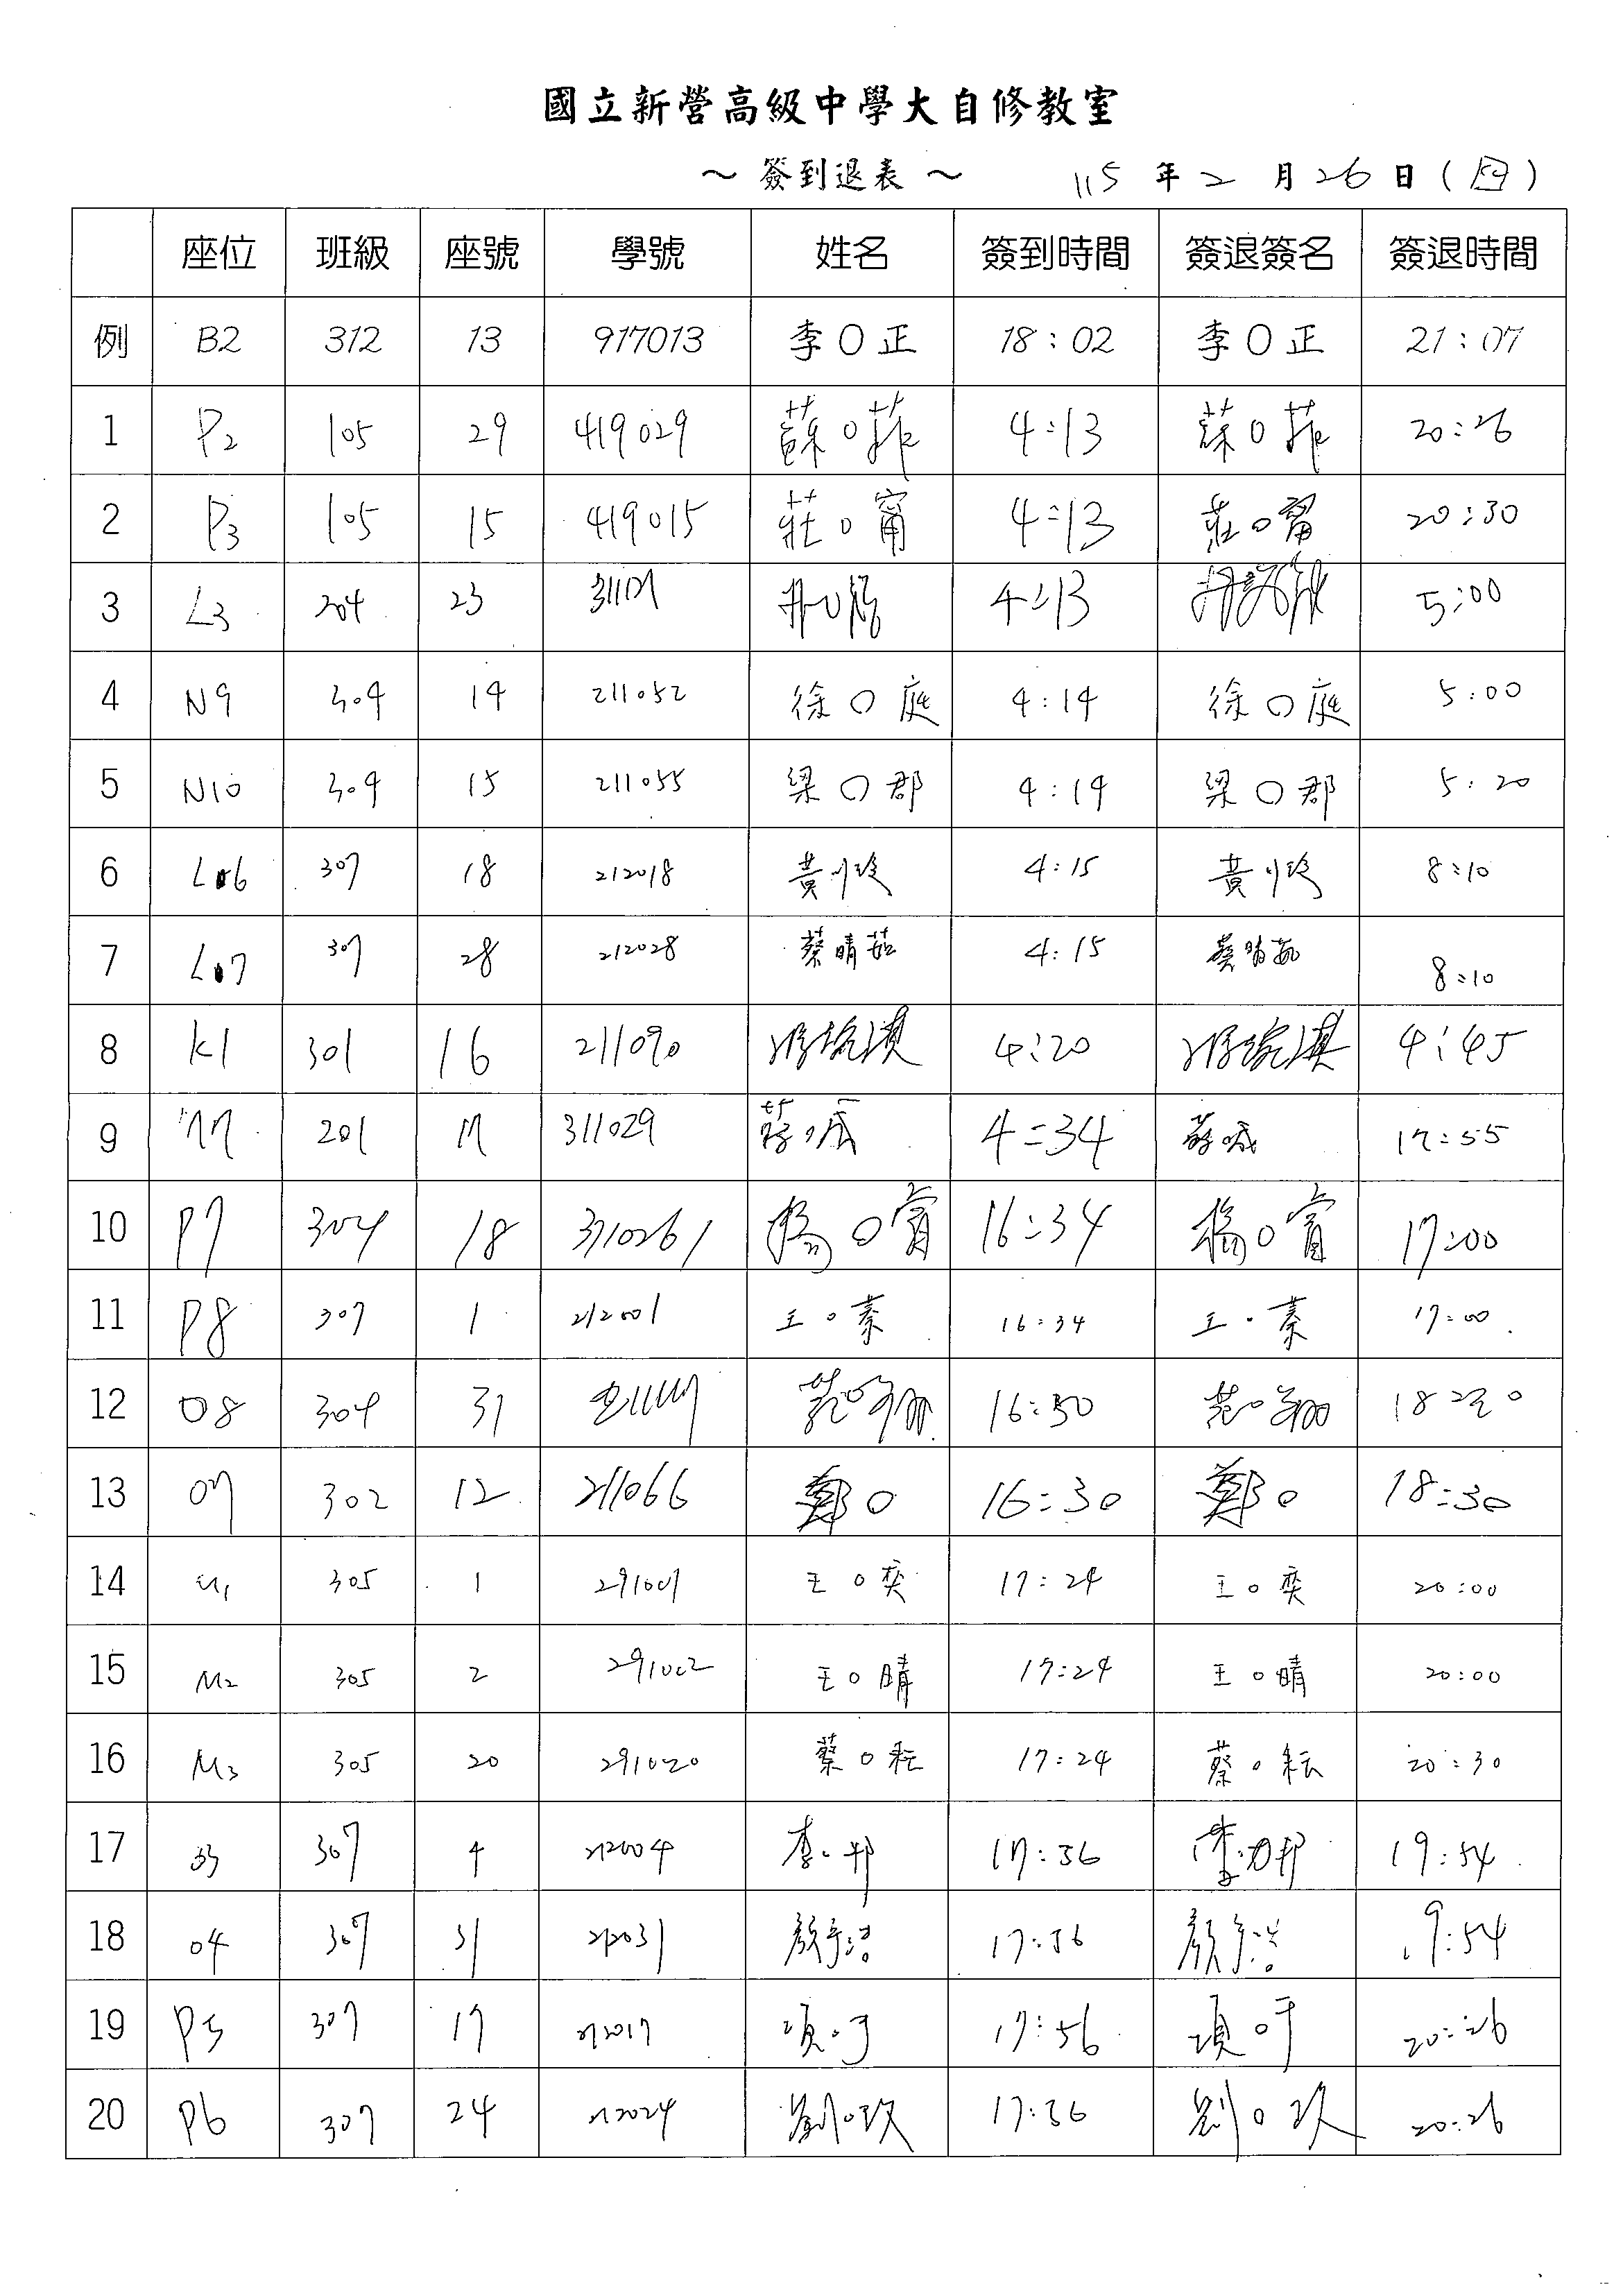 國立新營高級中學大自修教室
～ 簽到退表 ～ 115 年 2 月 26 日 (四)
座位 班級 座號 學號 姓名 簽到時間 簽退簽名 簽退時間
例 B2 312 13 917013 李O正 18:02 李O正 21:07
1 P2 105 29 419029 蘇O菲 4:13 蘇O菲 20:26
2 P3 105 15 419015 莊O甯 4:13 莊O甯 20:30
3 L3 204 23 4:13 5:00
4 N9 304 14 211052 徐O庭 4:14 徐O庭 5:00
5 N10 304 15 211055 梁O郡 4:14 梁O郡 5:20
6 L6 307 18 212018 黃 4:15 黃 8:10
7 L7 307 28 212028 蔡晴茹 4:15 蔡晴茹 8:10
8 K1 301 16 211090 4:20 4:45
9 201 17 311029 4:34 17:55
10 P7 304 18 16:34 楊O甯 17:00
11 P8 307 1 212001 王O蓁 16:34 王O蓁 17:00
12 O8 304 31 范O翔 16:30 范O翔 18:30
13 O7 302 12 211066 鄭O 16:30 鄭O 18:30
14 M1 305 1 291001 王O奕 17:24 王O奕 20:00
15 M2 305 2 291002 王O晴 17:24 王O晴 20:00
16 M3 305 20 291020 蔡O耘 17:24 蔡O耘 20:30
17 O3 307 4 212004 李O邦 17:36 19:54
18 O4 307 31 212031 顏 17:36 顏 19:54
19 P5 307 17 212017 項O于 17:56 項O于 20:26
20 P6 307 24 212024 劉O玫 17:36 劉O玟 20:26